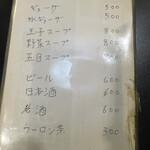 ギョーザ 500
水ギョーザ 500
玉子スープ 800
野菜スープ 800
五目スープ 800
ビール 600
日本酒 600
老酒 600
ウーロン茶 300